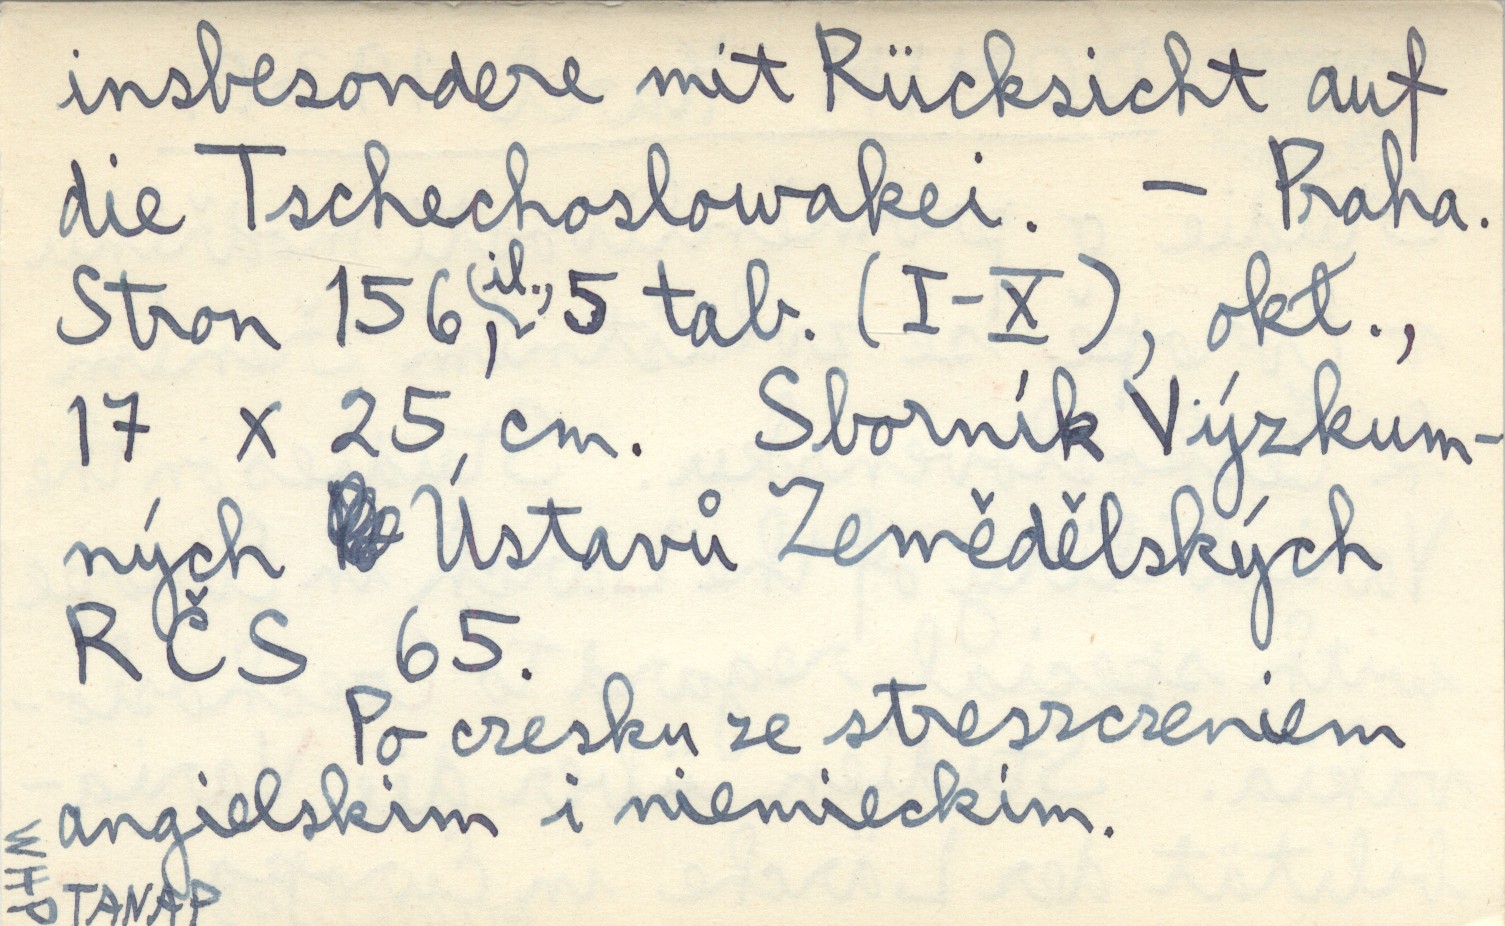 insbesondere mit Rücksicht auf
die Tschechoslowakei. – Praha.
Stron 156, il., 5 tab. (I-X), okt.,
17 x 25 cm. Sborník Výzkum-
ných Ústavů Zemědělských
RČS 65.
Po czesku ze streszczeniem
angielskim i niemieckim.
WHP
TANAP